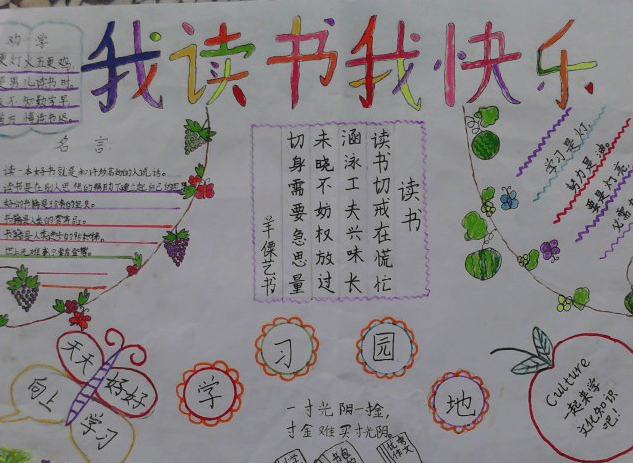 我读书我快乐
劝学
更灯火五更鸡
是男儿读书时
不知勤学早
悔读书迟
名言
读一本好书就是和许多高尚的人说话。
读书是在别人思想的帮助下建立起自己的思
书籍是人类进步的阶梯。
读书
读书切戒在慌忙
涵泳工夫兴味长
未晓不妨权放过
切身需要急思量
羊傈艺书
学习是灯
努力是油。
要是灯亮
必需
天天
好好
向上
学习
学
习
园
地
一寸光阴一寸金,
寸金难买寸光阴。
优秀
作文
Culture
一起来学
文化知识
吧!